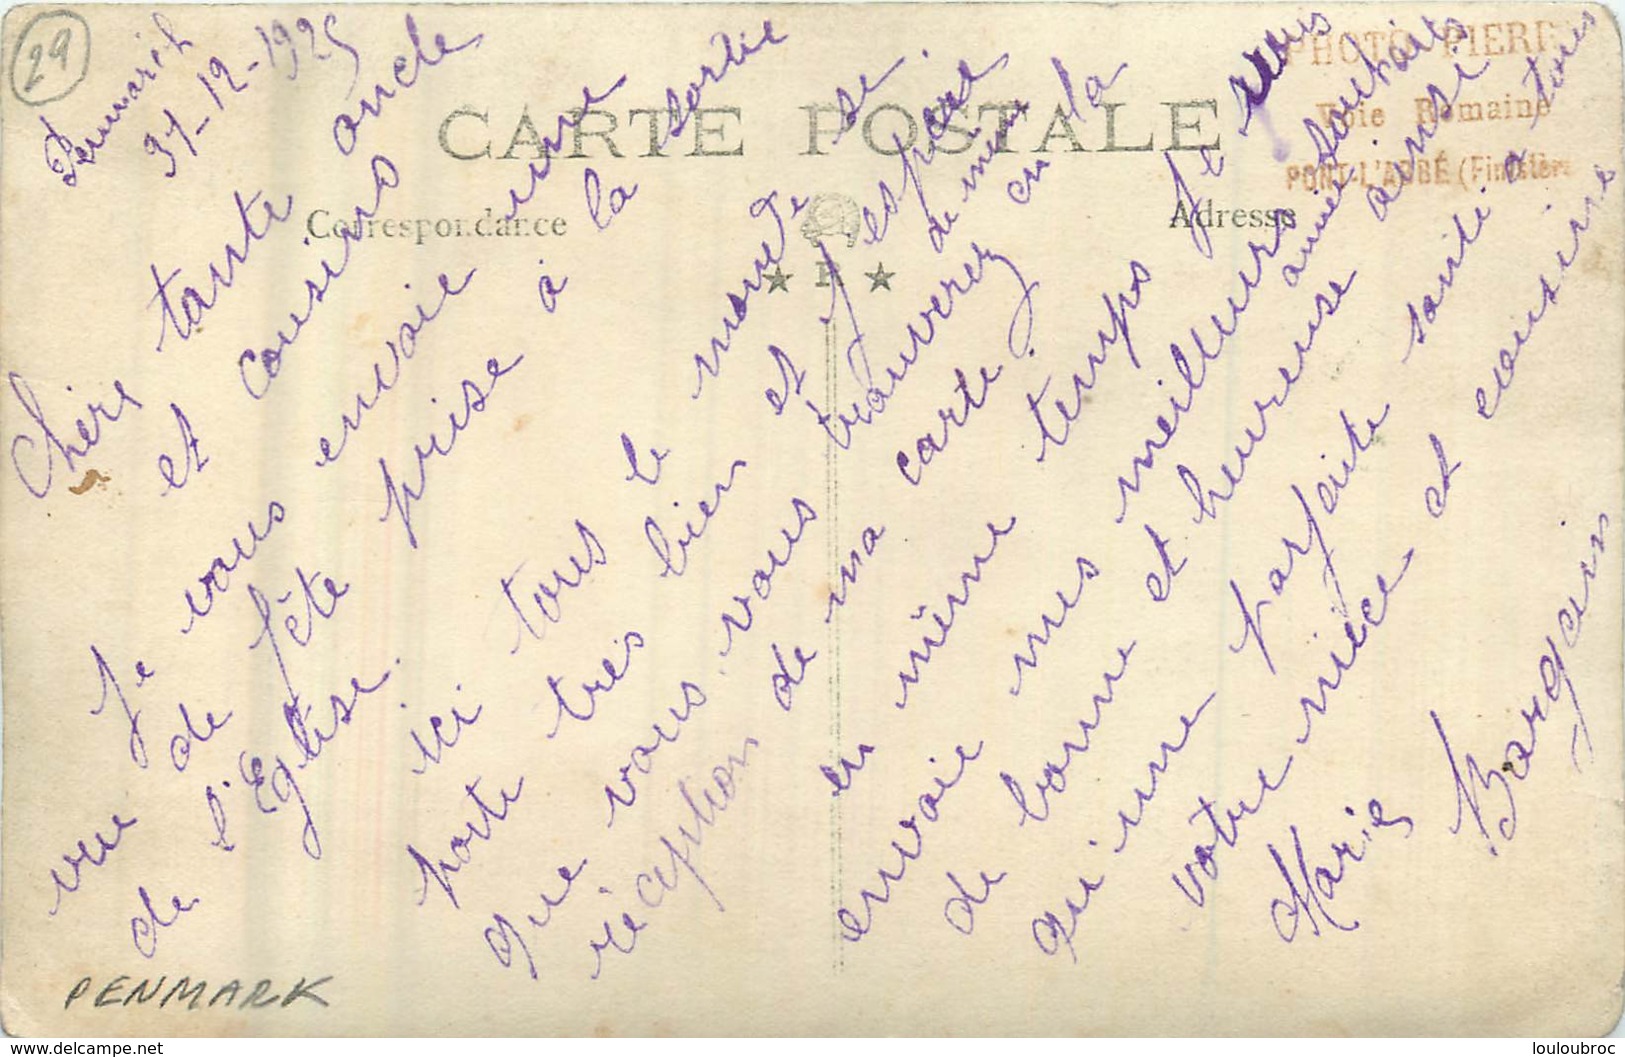 29
Penmarch
31-12-1925
PHOTO PIERRE
Voie Romaine
PONT-L'ABBÉ (Finistère
CARTE POSTALE
Correspondance
Adresse
R
Chère tante oncle
et cousins
Je vous envoie une
vue de fête prise à la sortie
de l'Eglise.
Ici tous le monde se
porte très bien et j'espère
que vous. vous trouverez de même
réception de ma carte. en la
en même temps je vous
envoie mes meilleurs souhaits
de bonne et heureuse année ainsi
qu'une parfaite santé a tous
votre nièce et cousine
Marie Bargain
PENMARK
www.delcampe.net
louloubroc